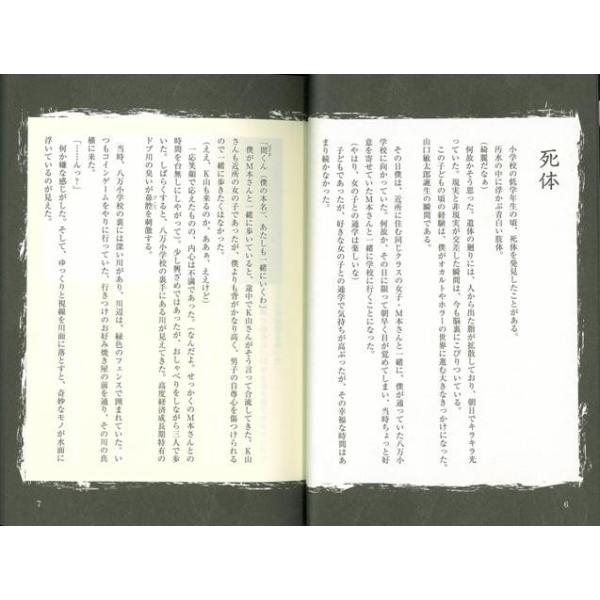 死体
小学校の低学年生の頃、死体を発見したことがある。
汚水の中に浮かぶ青白い肢体。
(綺麗だなぁ)
何故かそう思った。遺体の廻りには、人から出た脂が拡散しており、朝日でキラキラ光
っていた。現実と非現実が交差した瞬間は、今も脳裏にこびりついている。
この子どもの頃の経験は、僕がオカルトやホラーの世界に進む大きなきっかけになった。
山口敏太郎誕生の瞬間である。
その日僕は、近所に住む同じクラスの女子・M本さんと一緒に、僕が通っていた八万小
学校に向かっていた。何故か、その日に限って朝早く目が覚めてしまい、当時ちょっと好
意を寄せていたM本さんと一緒に学校に行くことになった。
(やはり、女の子との通学は楽しいな)
子どもであったが、好きな女の子との通学で気持ちが高ぶったが、その幸福な時間はあ
まり続かなかった。
6
「間くん(僕の本名)、あたしも一緒にいくわ」
僕がM本さんと一緒に歩いていると、途中でK山さんがそう言って合流してきた。K山
さんも近所の女の子であったが、僕よりも背がかなり高く、男子の自尊心を傷つけられる
ので一緒に歩きたくはなかった。
(ええ、K山も来るのか、ああぁ、ええけど)
一応笑顔で応えたものの、内心は不満であった。(なんだよ。せっかくのM本さんとの
時間を台無しにしやがって)。少し興ざめではあったが、おしゃべりをしながら三人で歩
いた。しばらくすると、八万小学校の裏手にある川が見えてきた。高度経済成長期特有の
ドブ川の臭いが鼻腔を刺激する。
当時、八万小学校の裏には深い川があり、川辺は、緑色のフェンスで囲まれていた。い
つもコインゲームをやりに行っていた、行きつけのお好み焼き屋の前を通り、その川の真
横に来た。
「……んっ?」
何か嫌な感じがした。そして、ゆっくりと視線を川面に落とすと、奇妙なモノが水面に
浮いているのが見えた。
7